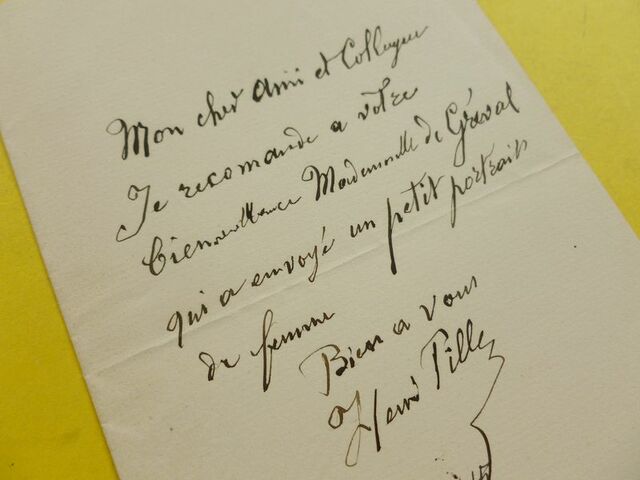 Mon cher Ami et Collegue
Je recomande a votre
bienveillance Mademoiselle de Graval
qui a envoyé un petit portrait
de femme
Bien a vous
Henri Pille